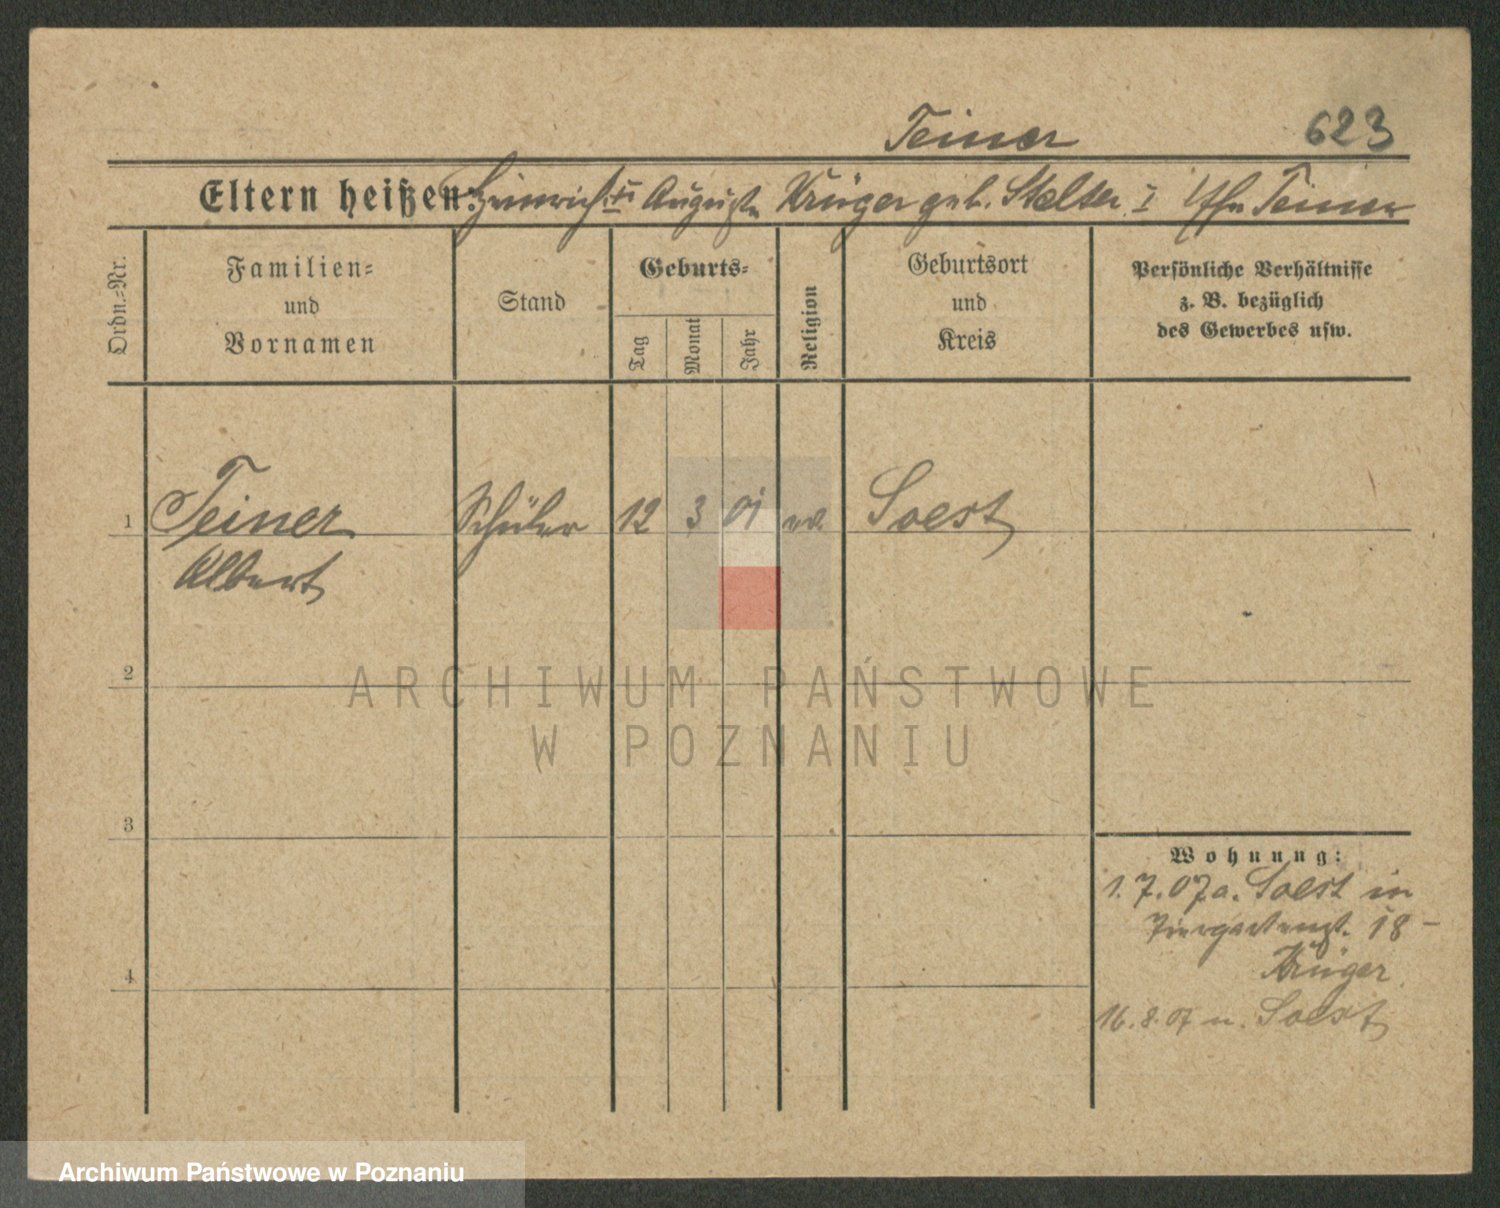 Teiner 623
Eltern heißen: Heinrich u. Auguste Krüger geb. Stelter I Teiner
Ordn.=Nr.
Familien=
und
Vornamen
Stand
Geburts=
Tag
Monat
Jahr
Religion
Geburtsort
und
Kreis
Persönliche Verhältnisse
z. B. bezüglich
des Gewerbes usw.
1 Teiner Schüler 12 3 01 ev. Soest
Albert
2
3
4
Wohnung:
1. 7. 07 a. Soest in
Tiergartenst. 18 -
Krüger
16. 8. 07 n. Soest
ARCHIWUM PAŃSTWOWE
W POZNANIU
Archiwum Państwowe w Poznaniu